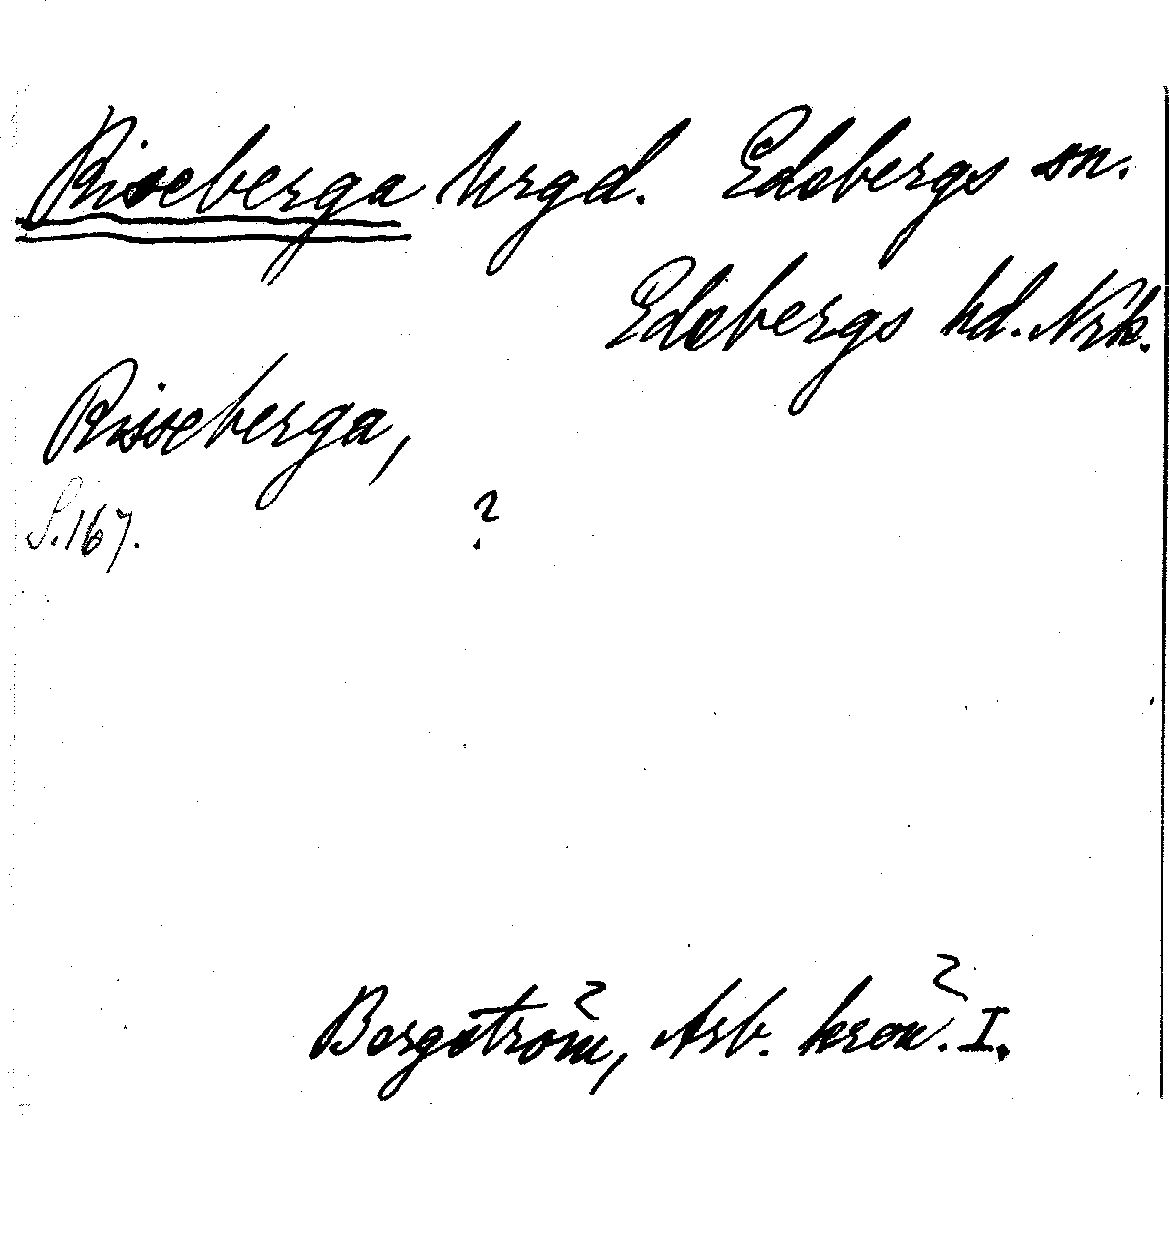 Riseberga hrgd. Edsbergs sn.
Edsbergs hd. Nrk.
Risseberga,
S. 167.
?
Bergström, Arb. krön. I.